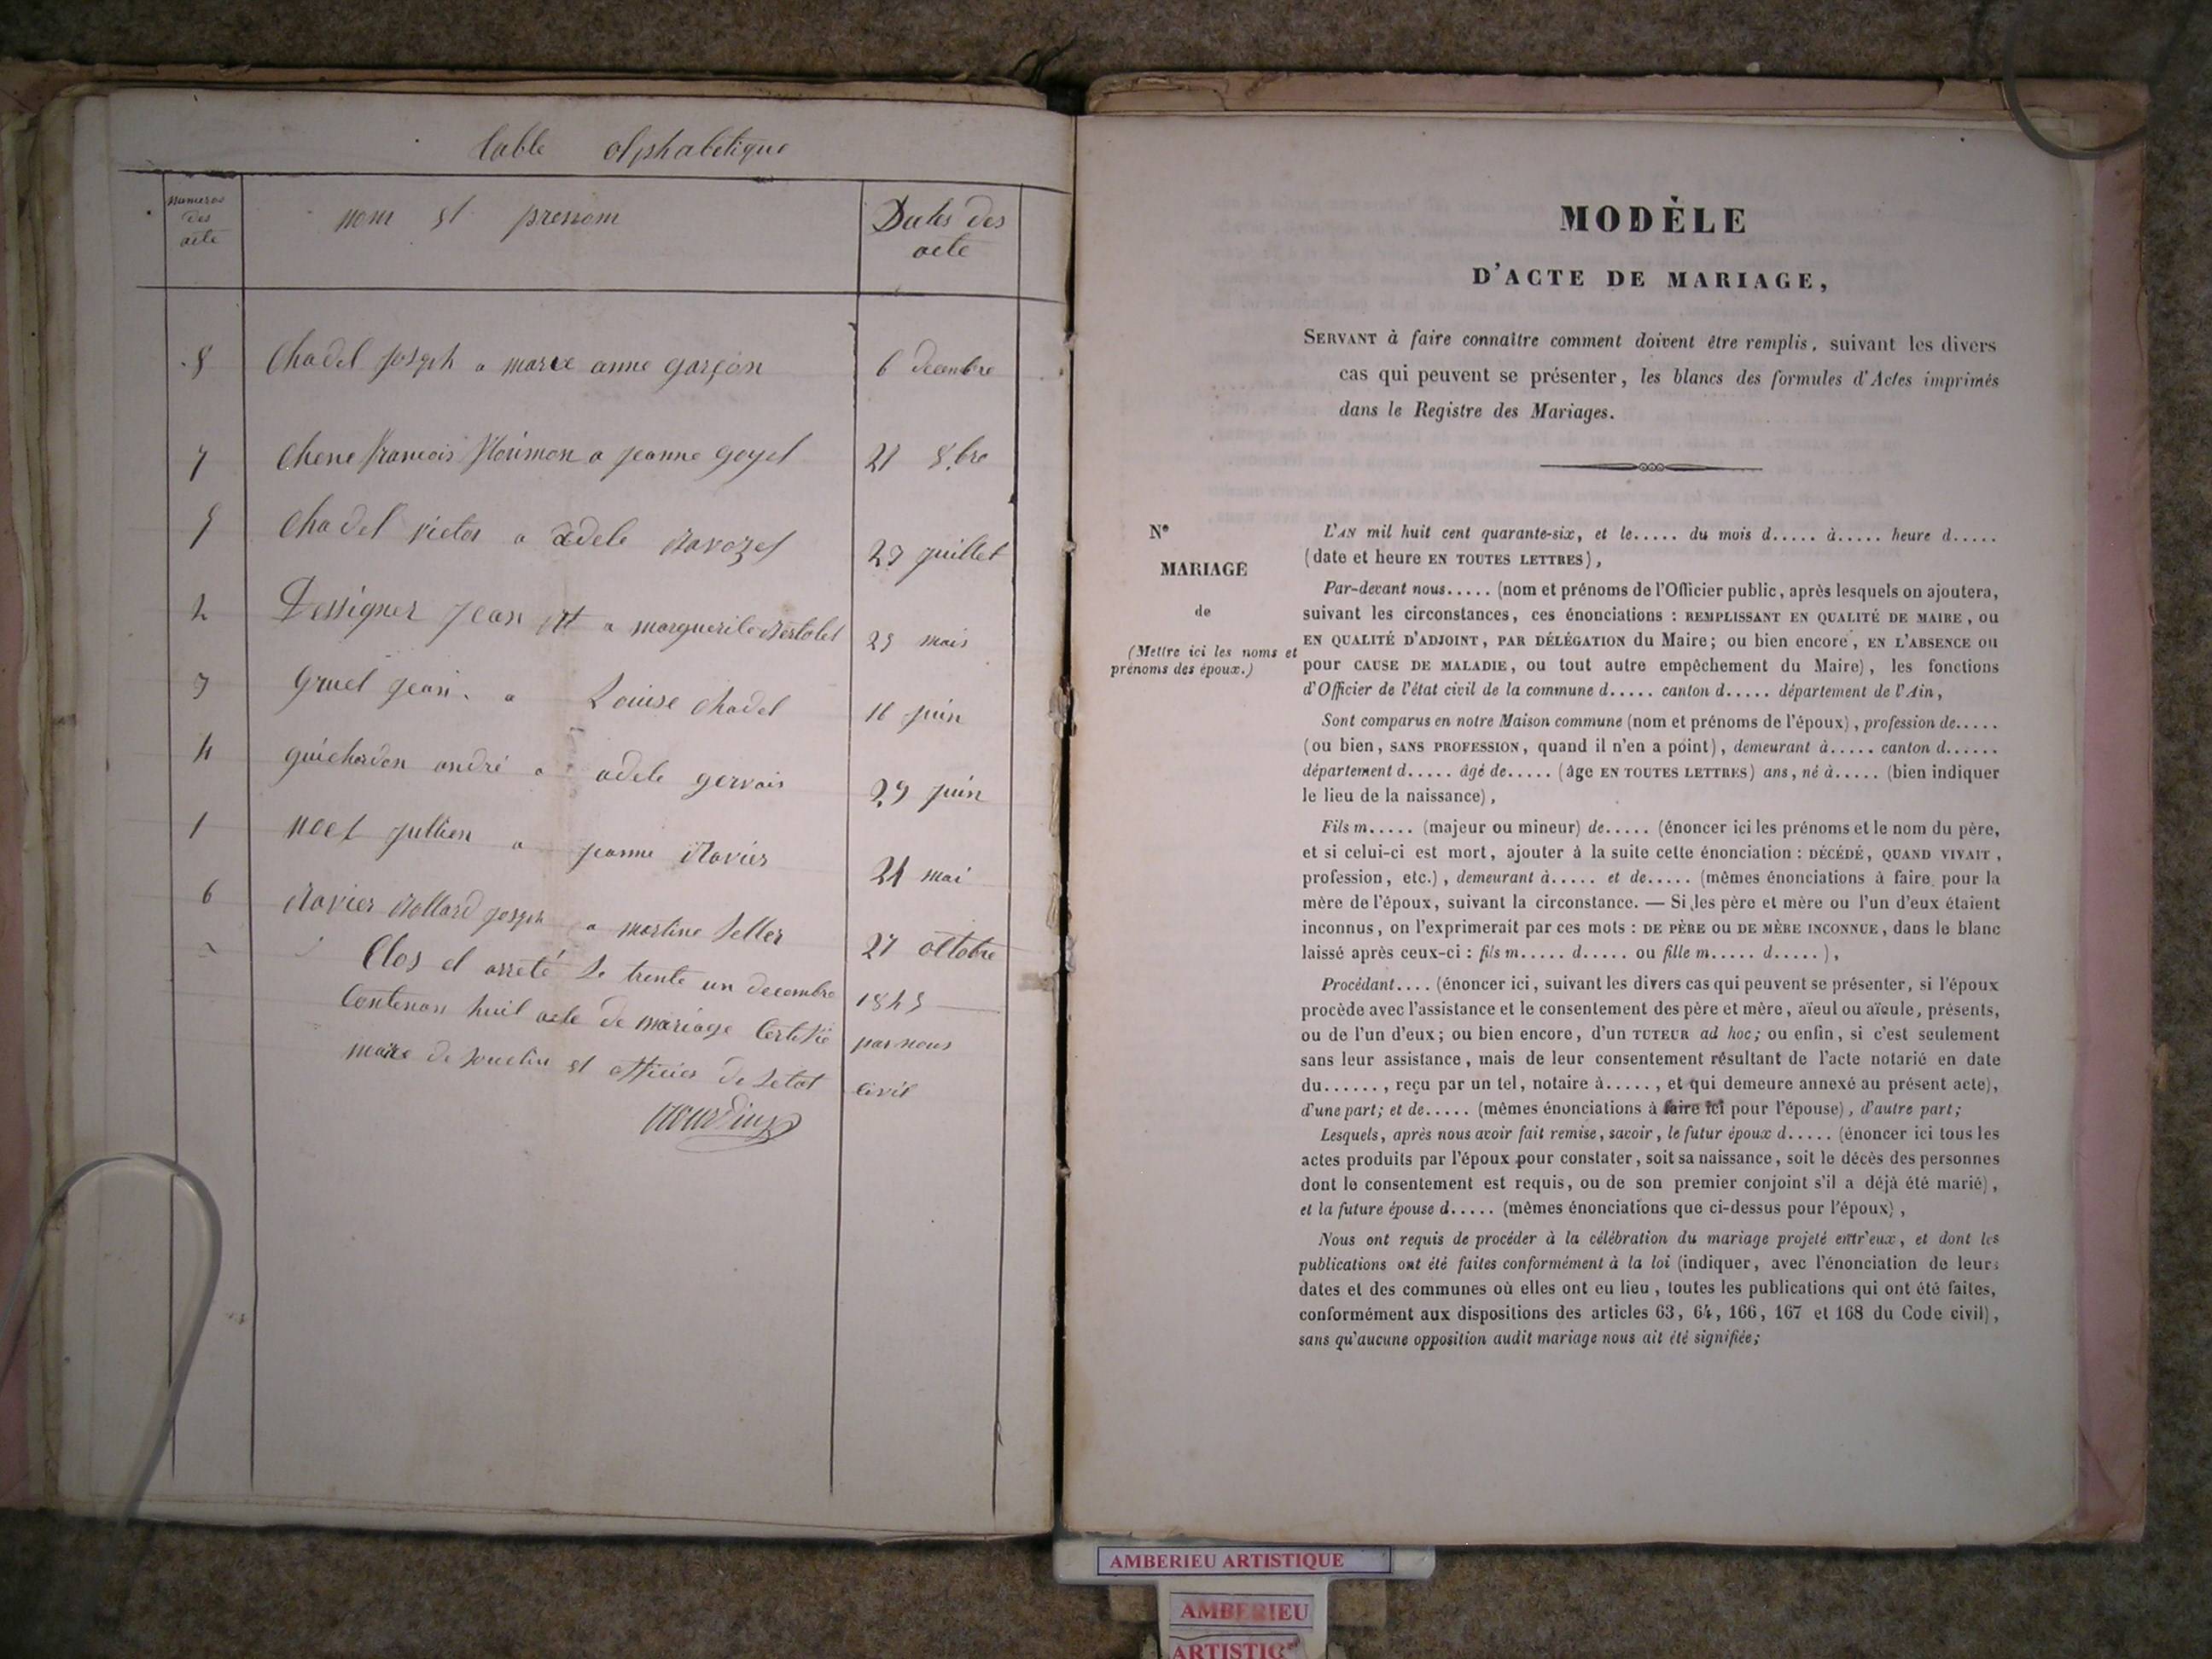 table alphabetique
numeros des acte
nom et prenom
Dates des acte
8 Chadel Joseph a marie anne garçon 6 decembre
7 Chene francois florimon a jeanne goyet 21 8.bre
5 Chadel victor a adele Ravozet 23 juillet
2 Dessigner Jean a marguerite Bertolet 25 mais
3 Gruel Jean a Louise Chadel 16 juin
4 guichardon andré a adele gervais 29 juin
1 noel jullien a jeanne Ravier 21 mai
6 Ravier Rollard joseph a martine 27 octobre
Clos et arreté le trente un decembre 1845
Contenan huit acte de mariage Certifié par nous
maire de Souclin et officier de letat civil
MODÈLE
D'ACTE DE MARIAGE,
SERVANT à faire connaître comment doivent être remplis, suivant les divers
cas qui peuvent se présenter, les blancs des formules d'Actes imprimés
dans le Registre des Mariages.
N°
MARIAGE
de
(Mettre ici les noms et
prénoms des époux.)
L'AN mil huit cent quarante-six, et le..... du mois d..... à..... heure d.....
(date et heure EN TOUTES LETTRES),
Par-devant nous..... (nom et prénoms de l'Officier public, après lesquels on ajoutera,
suivant les circonstances, ces énonciations : REMPLISSANT EN QUALITÉ DE MAIRE, OU
EN QUALITÉ D'ADJOINT, PAR DÉLÉGATION du Maire; ou bien encore, EN L'ABSENCE OU
pour CAUSE DE MALADIE, ou tout autre empêchement du Maire), les fonctions
d'Officier de l'état civil de la commune d..... canton d..... département de l'Ain,
Sont comparus en notre Maison commune (nom et prénoms de l'époux), profession de.....
(ou bien, SANS PROFESSION, quand il n'en a point), demeurant à..... canton d......
département d..... âgé de..... (âge EN TOUTES LETTRES) ans, né à..... (bien indiquer
le lieu de la naissance),
Fils m..... (majeur ou mineur) de..... (énoncer ici les prénoms et le nom du père,
et si celui-ci est mort, ajouter à la suite cette énonciation : DÉCÉDÉ, QUAND VIVAIT,
profession, etc.), demeurant à..... et de..... (mêmes énonciations à faire pour la
mère de l'époux, suivant la circonstance. — Si les père et mère ou l'un d'eux étaient
inconnus, on l'exprimerait par ces mots : DE PÈRE OU DE MÈRE INCONNUE, dans le blanc
laissé après ceux-ci : fils m..... d..... ou fille m..... d.....),
Procédant.... (énoncer ici, suivant les divers cas qui peuvent se présenter, si l'époux
procède avec l'assistance et le consentement des père et mère, aïeul ou aïeule, présents,
ou de l'un d'eux; ou bien encore, d'un TUTEUR ad hoc; ou enfin, si c'est seulement
sans leur assistance, mais de leur consentement résultant de l'acte notarié en date
du......, reçu par un tel, notaire à....., et qui demeure annexé au présent acte),
d'une part; et de..... (mêmes énonciations à faire ici pour l'épouse), d'autre part;
Lesquels, après nous avoir fait remise, savoir, le futur époux d..... (énoncer ici tous les
actes produits par l'époux pour constater, soit sa naissance, soit le décès des personnes
dont le consentement est requis, ou de son premier conjoint s'il a déjà été marié),
et la future épouse d..... (mêmes énonciations que ci-dessus pour l'époux),
Nous ont requis de procéder à la célébration du mariage projeté entr'eux, et dont les
publications ont été faites conformément à la loi (indiquer, avec l'énonciation de leurs
dates et des communes où elles ont eu lieu, toutes les publications qui ont été faites,
conformément aux dispositions des articles 63, 64, 166, 167 et 168 du Code civil),
sans qu'aucune opposition audit mariage nous ait été signifiée;
AMBERIEU ARTISTIQUE
AMBERIEU
ARTISTIQ